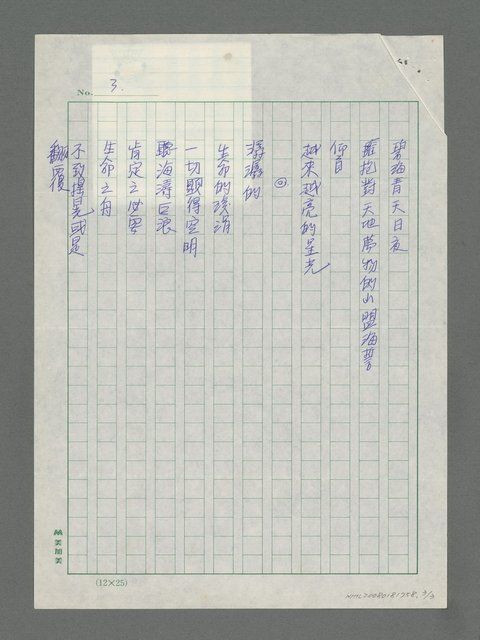 No. 3.
碧海青天日夜
擁抱著天地萬物的山盟海誓
仰首
越來越亮的星光
◎
潺潺的
生命的環涓
一切顯得空明
聽海濤巨浪
肯定之必要
生命之舟
不致擱晃或是
翻覆
美加美
(12×25)
NMTL20080181758, 3/3